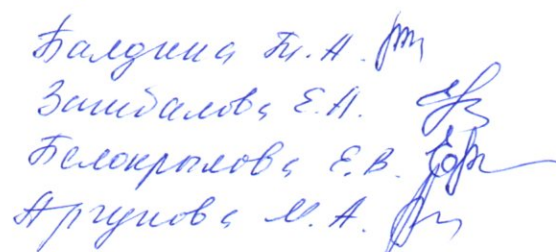 Балдина Т.А.
Зашбалова Е.А.
Белокрылова Е.В.
Аргунова М.А.